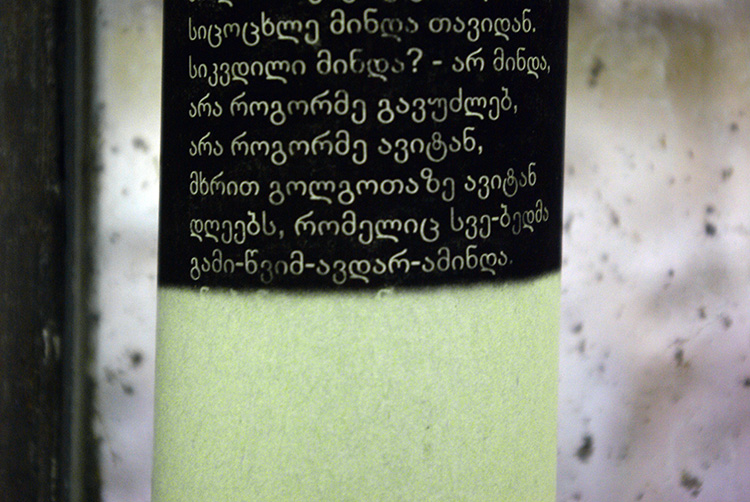 სიცოცხლე მინდა თავიდან.
სიკვდილი მინდა? - არ მინდა,
არა როგორმე გავუძლებ,
არა როგორმე ავიტან,
მხრით გოლგოთაზე ავიტან
დღეებს, რომელიც სვე-ბედმა
გამი-წვიმ-ავდარ-ამინდა.